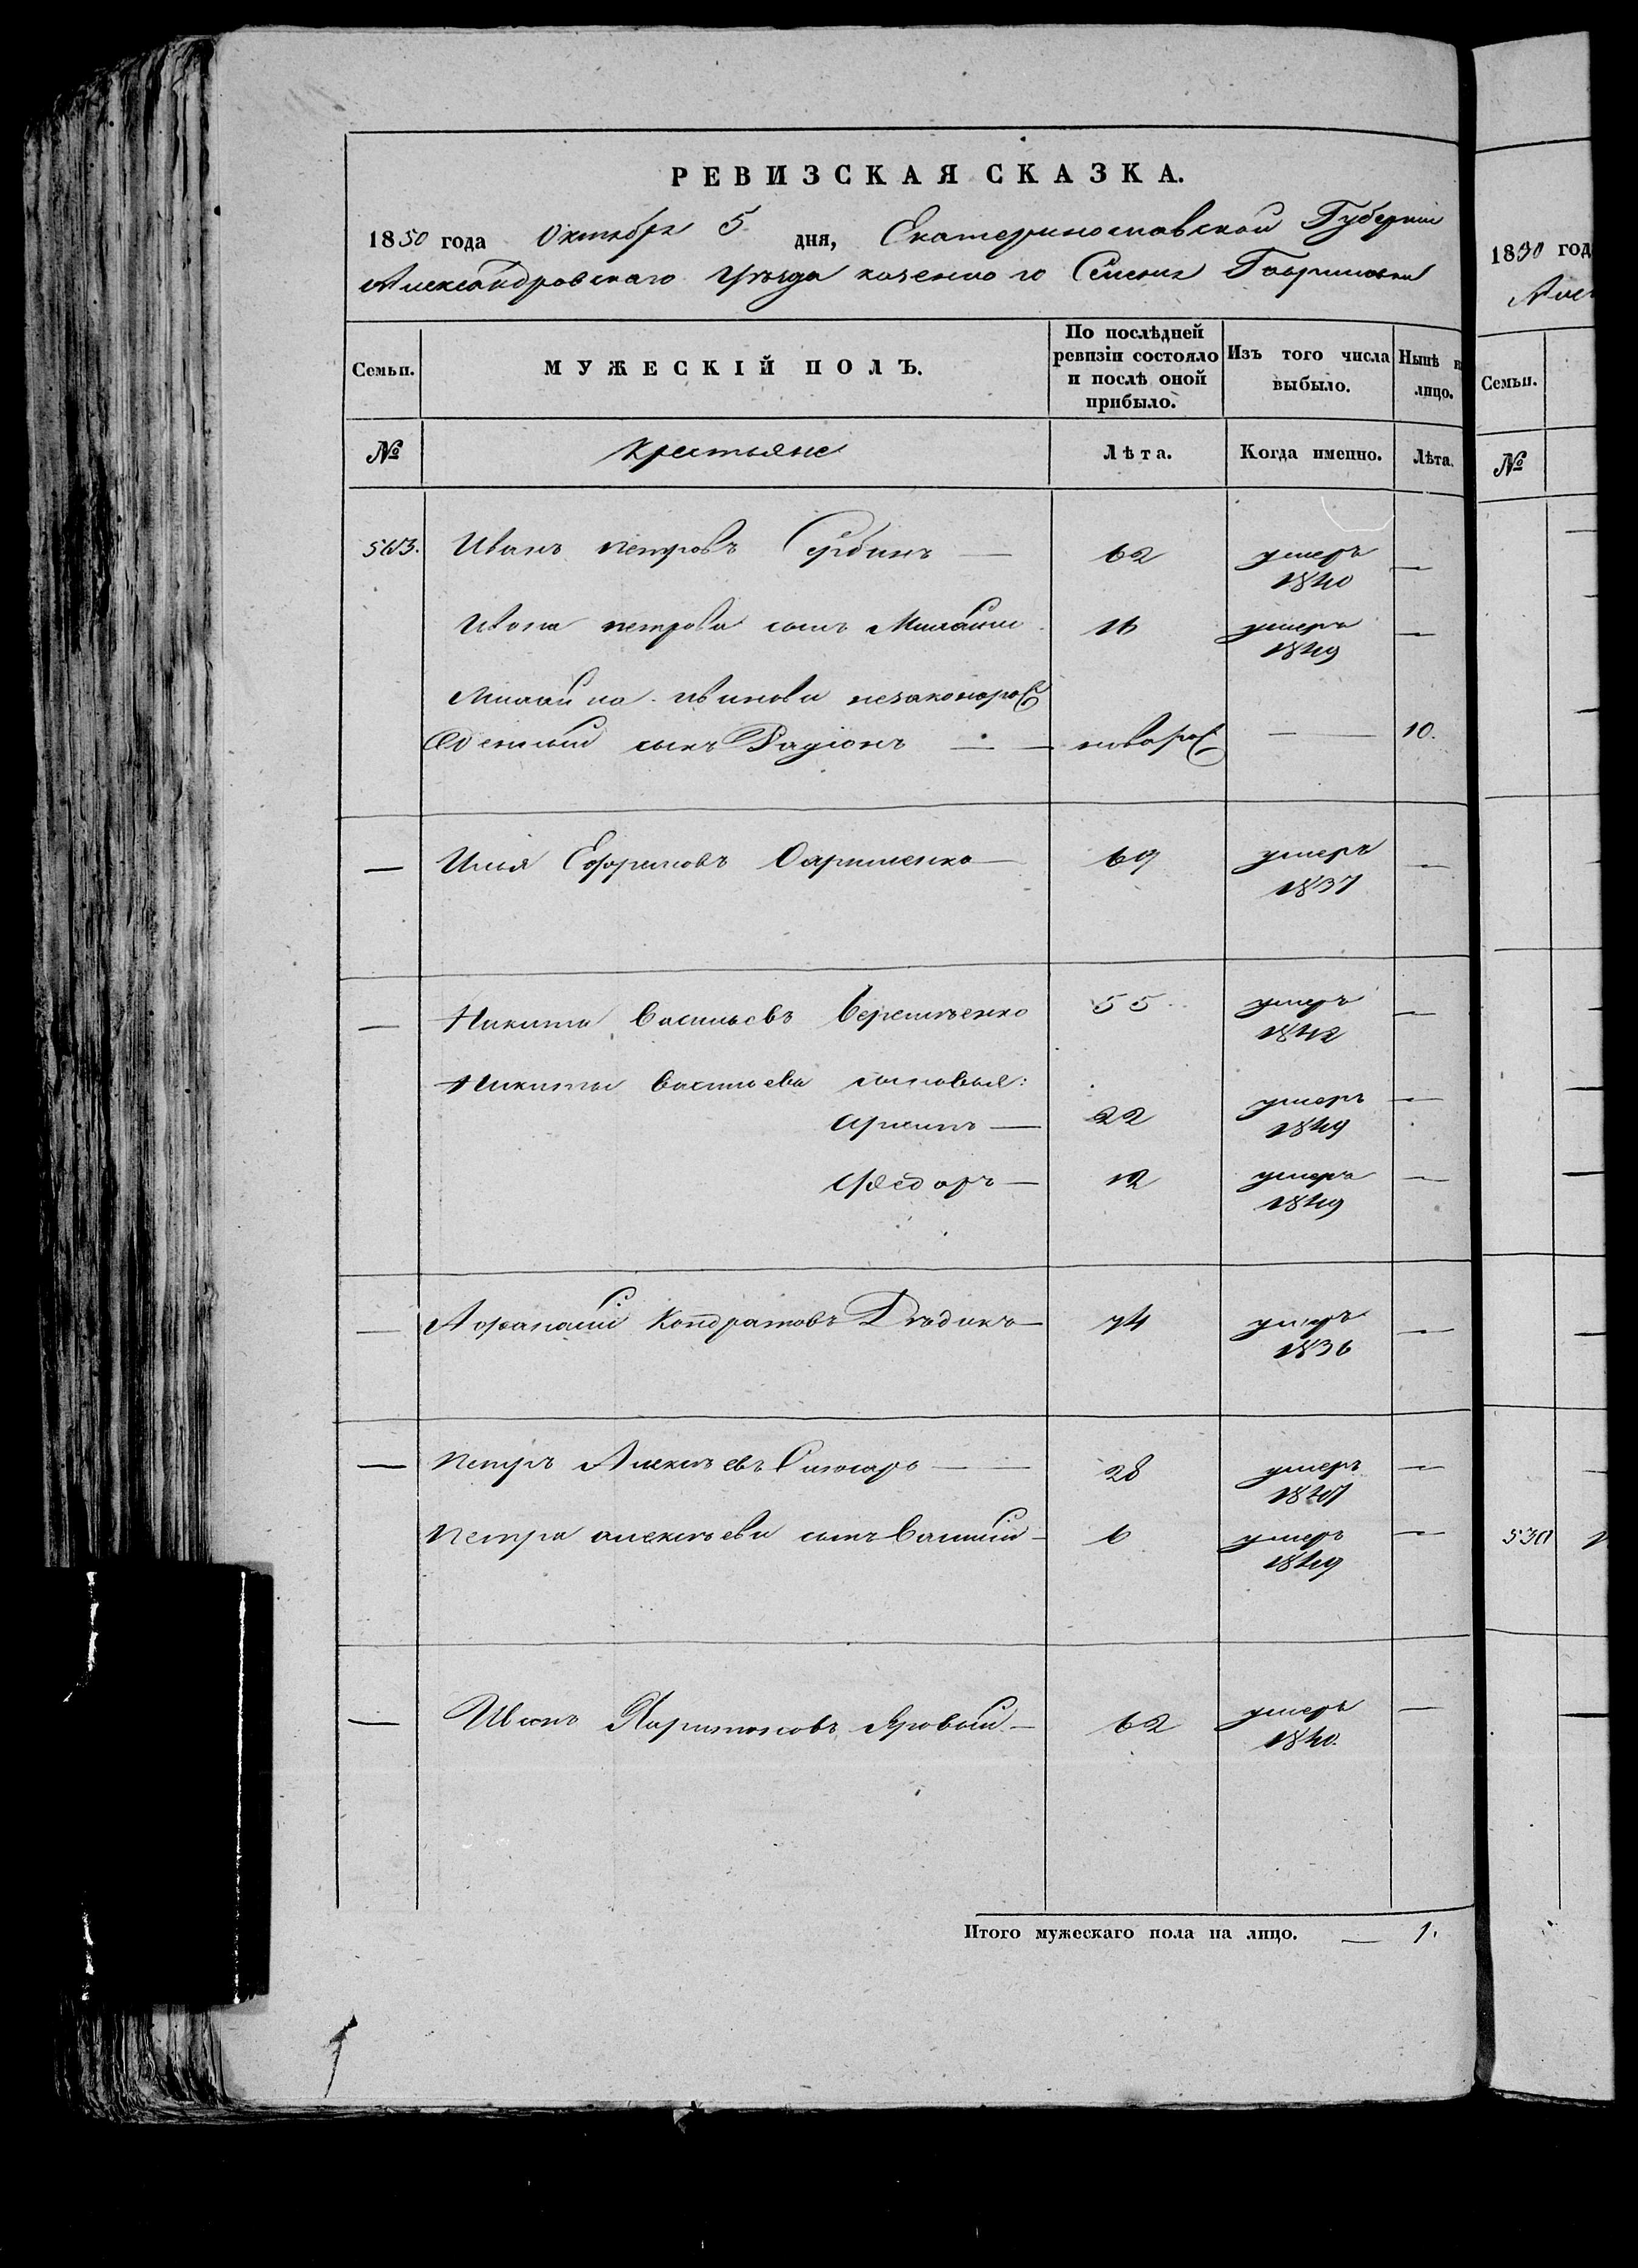 РЕВИЗСКАЯ СКАЗКА.
1850 года Октября 5 дня, Екатеринославской Губернии
Александровскаго Уѣзда казеннаго Селенія Гавриловки
Семьи. МУЖЕСКІЙ ПОЛЪ. По послѣдней ревизіи состояло и послѣ оной прибыло. Изъ того числа выбыло. Нынѣ н лицо.
№ Крестьяне Лѣта. Когда именно. Лѣта.
Иванъ петровъ Сербинъ — 62 умеръ 1840 —
Ивана петрова сынъ 16 умеръ 1849 —
ивановa незаконорож
денный сынъ Радіонъ — — новорож — 10.
— Илья Ефремовъ 69 умеръ 1837 —
— Никита Васильевъ 55 умеръ 1842 —
Никиты Васильева сыновья:
Архипъ — 22 умеръ 1849 —
Ѳедоръ — 12 умеръ 1849 —
— Афанасій Кондратовъ Дѣдикъ — 74 умеръ 1836 —
— Петръ Алексѣевъ — — 28 умеръ 1847 —
Петра алексѣева сынъ Василій — 6 умеръ 1849 —
— Иванъ Харитоновъ Яровый — 62 умеръ 1840. —
Итого мужескаго пола на лицо. — 1.
1830 год
Семьи.
№
530